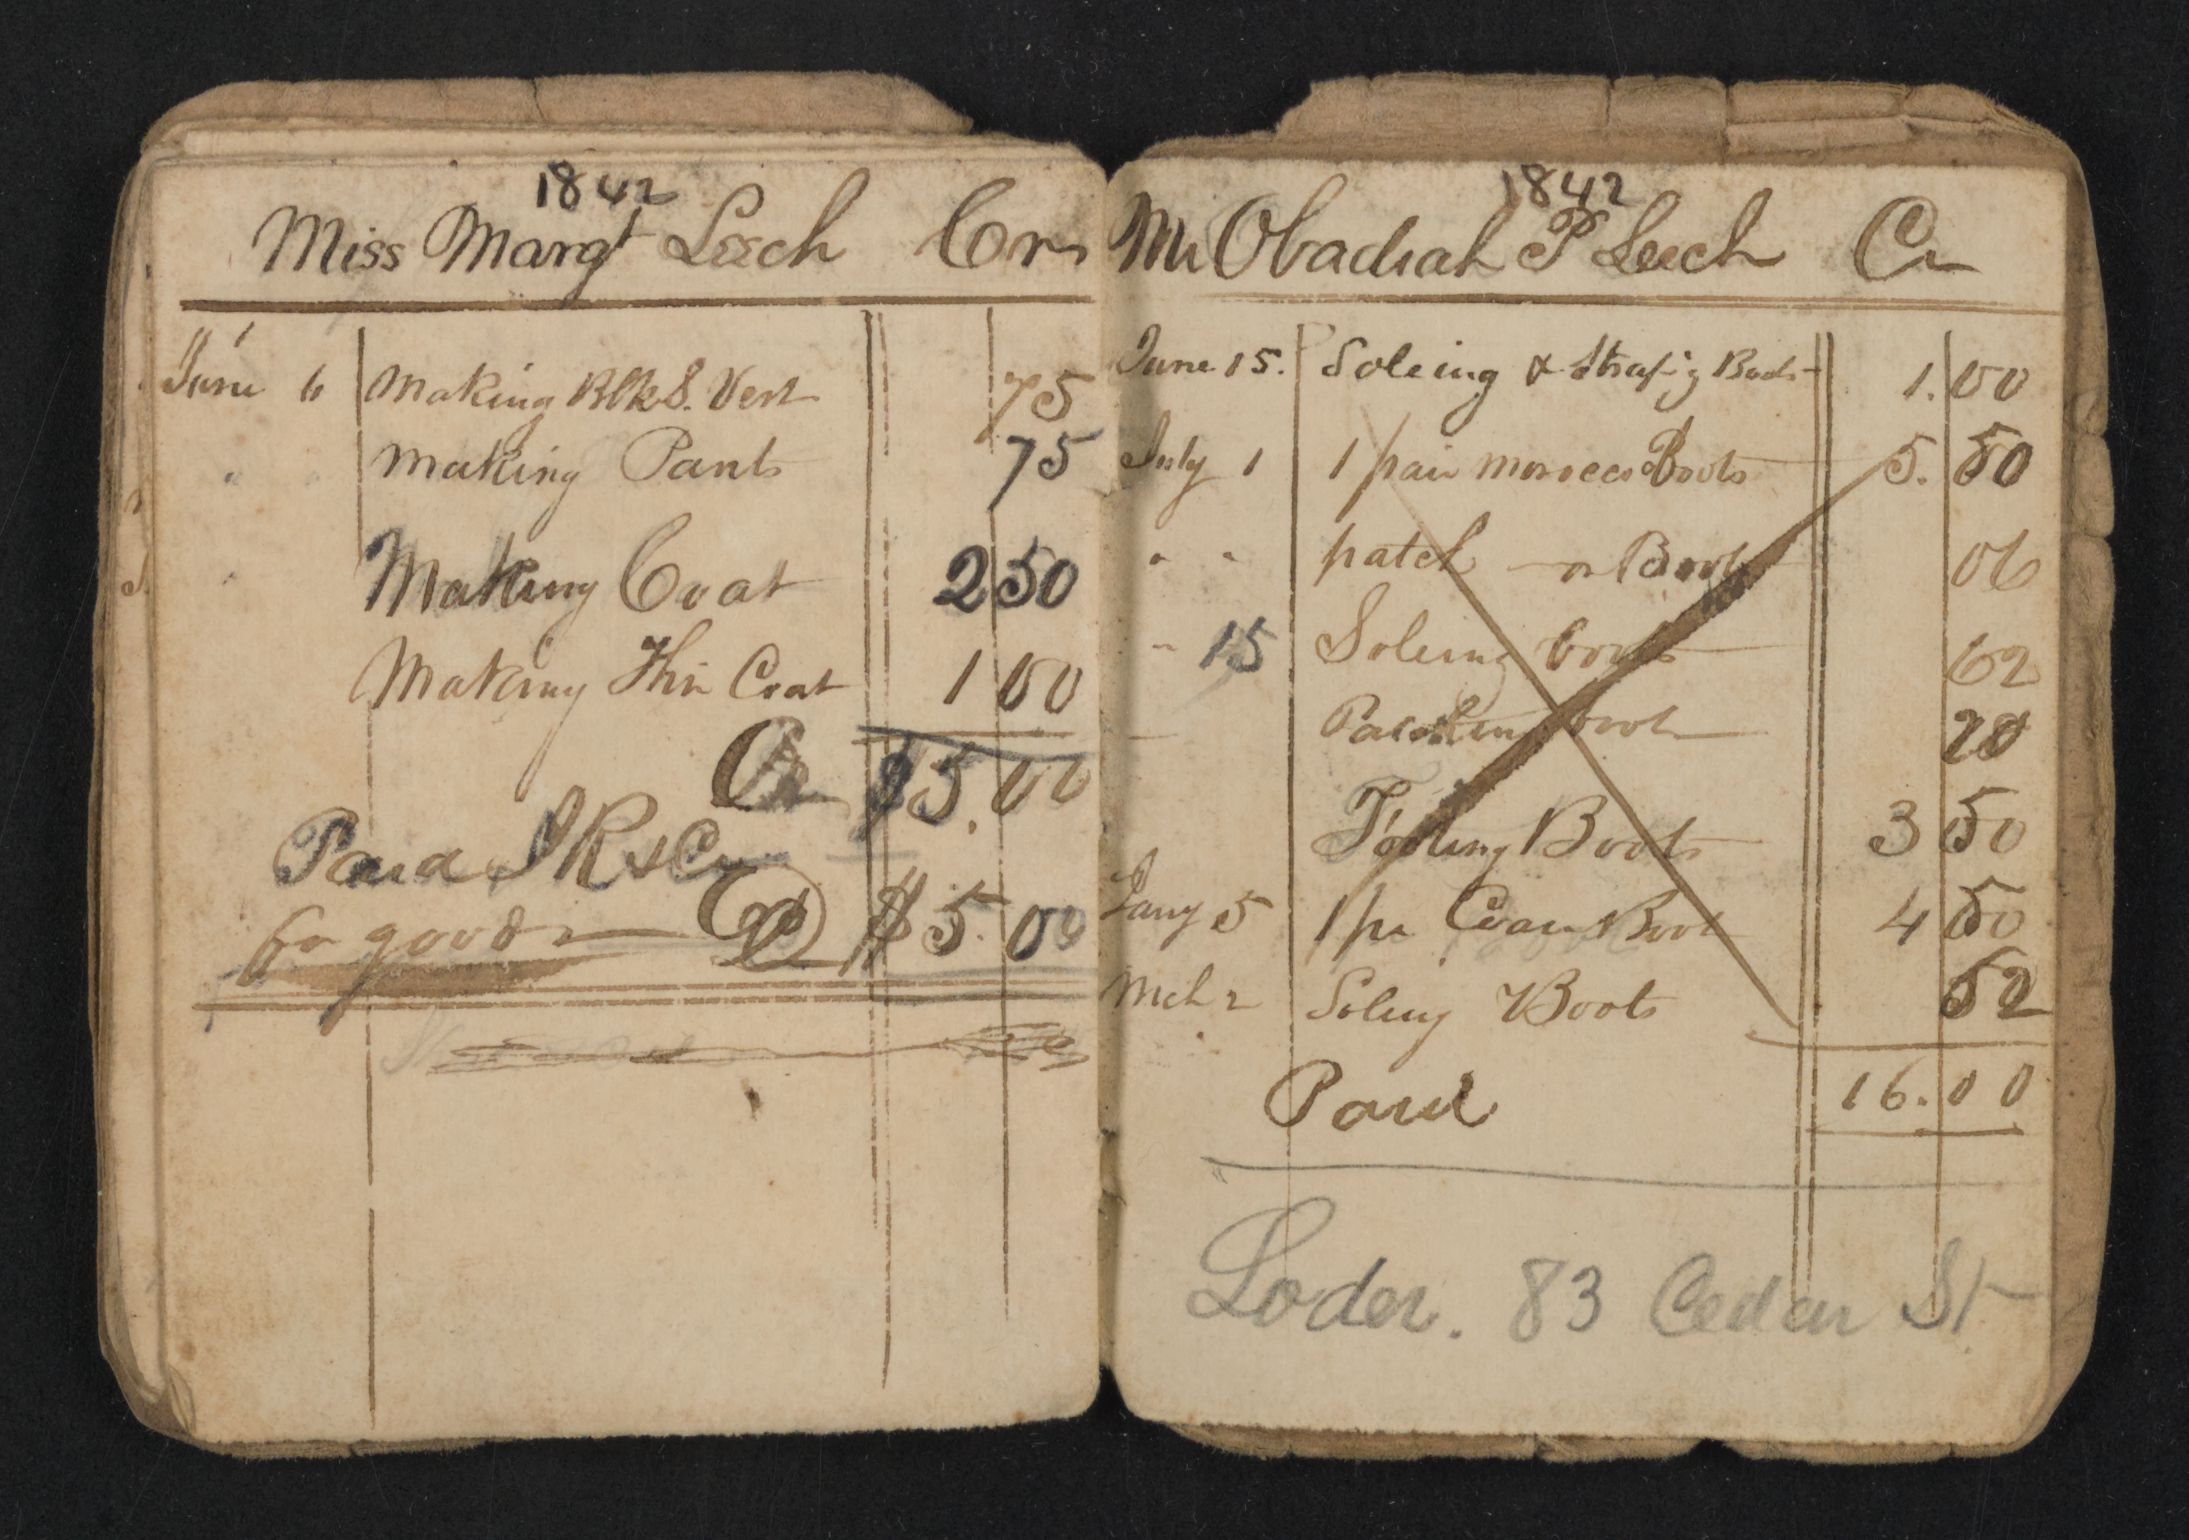 1842
Miss Margt Leech Cr
June 6 Making Blk S. Vest 75
" " Making Pants 75
" Making Coat 2 50
Making Thin Coat 1 00
Cr $5.00
Paid
for goods $5.00
1842
Mr Obadiah P Leech Cr
June 15. Soleing & Strap'g Boots 1.00
July 1 1 pair morocco Boots 5.50
" " patch on Boot 06
" 15 Soleing boots 62
Patching boot 20
Footing Boots 3 50
Jany 5 1 pr Coarse Boots 4 50
Mch 2 Soleing Boots 62
Paid 16.00
Loder. 83 Cedar St